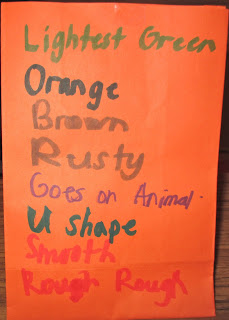 Lightest Green
Orange
Brown
Rusty
Goes on Animal.
U shape
Smooth
Rough Rough